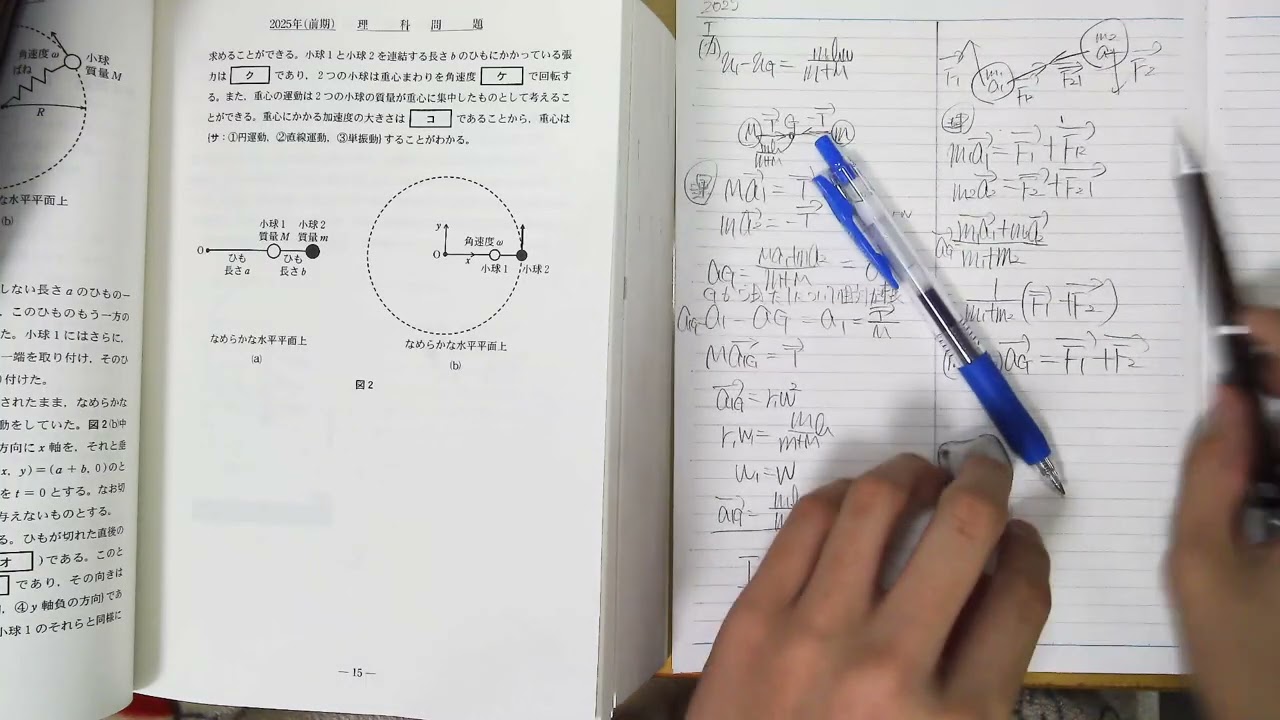 角速度 ω
小球
質量 M
ばね
R
な水平平面上
(b)
しない長さ a のひもの一
，このひものもう一方の
た。小球 1 にはさらに，
一端を取り付け，そのひ
り付けた。
されたまま，なめらかな
動をしていた。図 2 (b)中
方向に x 軸を，それと垂
x, y) = (a + b, 0)のと
を t = 0 とする。なお切
与えないものとする。
る。ひもが切れた直後の
オ )である。このと
であり，その向きは
，④ y 軸負の方向}であ
小球 1 のそれらと同様に
2025年(前期) 理 科 問 題
求めることができる。小球 1 と小球 2 を連結する長さ b のひもにかかっている張
力は ク であり，2 つの小球は重心まわりを角速度 ケ で回転す
る。また，重心の運動は 2 つの小球の質量が重心に集中したものとして考えるこ
とができる。重心にかかる加速度の大きさは コ であることから，重心は
{サ：①円運動，②直線運動，③単振動}することがわかる。
小球 1 小球 2
質量 M 質量 m
O
ひも ひも
長さ a 長さ b
なめらかな水平平面上
(a)
y
角速度 ω
O x 小球 1 小球 2
なめらかな水平平面上
(b)
図 2
― 15 ―
2025
I
(カ)
u₁-u_G =
M T G -T m
Ma₁ = T
ma₂ = -T
a_G = = 0
a₁ - a_G = a₁ = T/M
Ma₁G = T
a₁G = r₁ω²
r₁ω₁ =
ω₁ = ω
a₁G =
F₁ m₁ a₁ F₁₂ F₂₁ m₂ a₂ F₂
m₁a₁ = F₁ + F₁₂
m₂a₂ = F₂ + F₂₁
a_G m₁a₁+m₂a₂/m₁+m₂
1/m₁+m₂ (F₁ + F₂)
a_G = F₁ + F₂